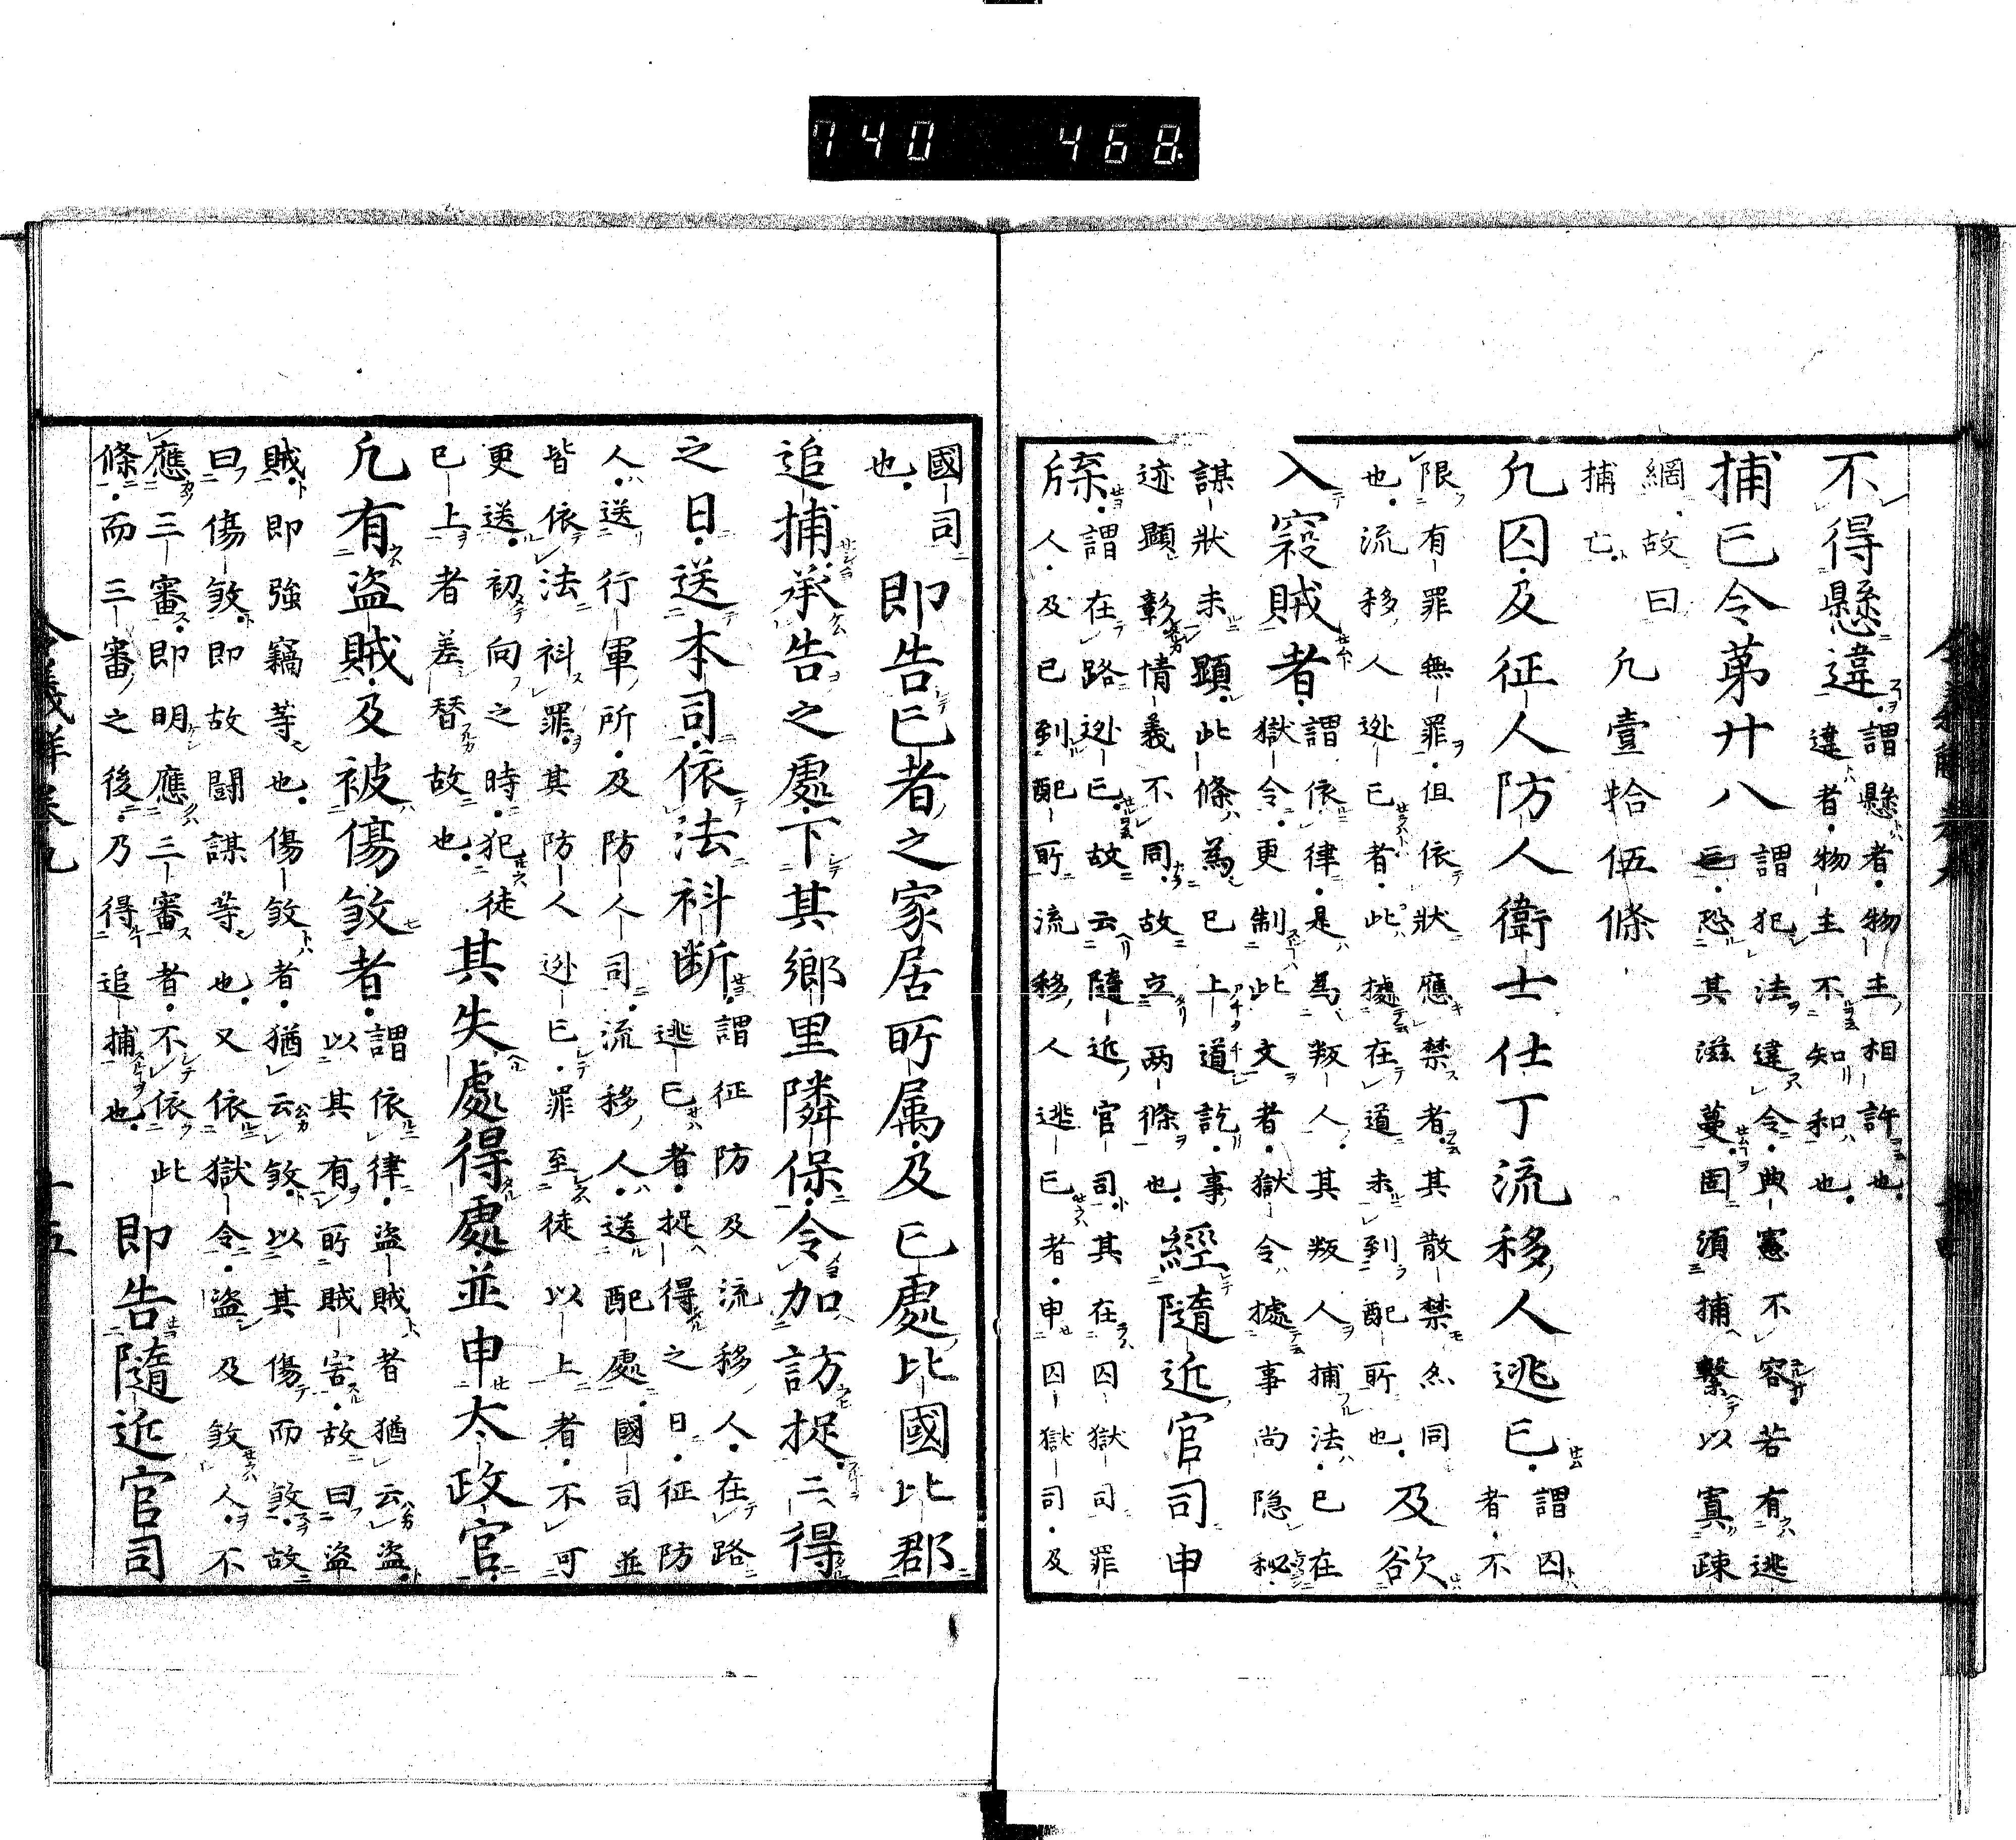 740 468
不得懸違謂懸者物主相許也
違者物主不知和也
捕亡令第廿八謂犯法違令典憲不容若有逃
亡恐其滋蔓固須捕繫以寘疎
網故曰
捕亡
凡壹拾伍條
凡囚及征人防人衛士仕丁流移人逃亡謂囚
者不
限有罪無罪但依狀應禁者其散禁亦同
也流移人逃亡者此據在道未到配所也
及欲
入寇賊者謂依律是為叛人其叛人捕法已在
獄令更制此文者獄令據事尚隠秘
謀狀未顯此條為已上道訖事
迹顯彰情義不同故立两條也
經隨近官司申
牒謂在路逃亡故云隨近官司其在囚獄司罪
人及已到配所流移人逃亡者申囚獄司及
國司
也
即告亡者之家居所属及亡處比國比郡
追捕承告之處下其鄉里隣保令加訪捉二得
之日送本司依法科断謂征防及流移人在路
逃亡者捉得之日征防
人送行軍所及防人司流移人送配處國司並
皆依法科罪其防人逃亡罪至徒以上者不可
更送初向之時犯徒
已上者差替故也
其失處得處並申太政官
凡有盗賊及被傷煞者謂依律盗賊者猶云盗
以其有所賊害故曰盗
賊即強竊等也傷煞者猶云煞以其傷而煞故
曰傷煞即故闘謀等也又依獄令盗及煞人不
應三審即明應三審者不依此
條而三審之後乃得追捕也
即告隨近官司